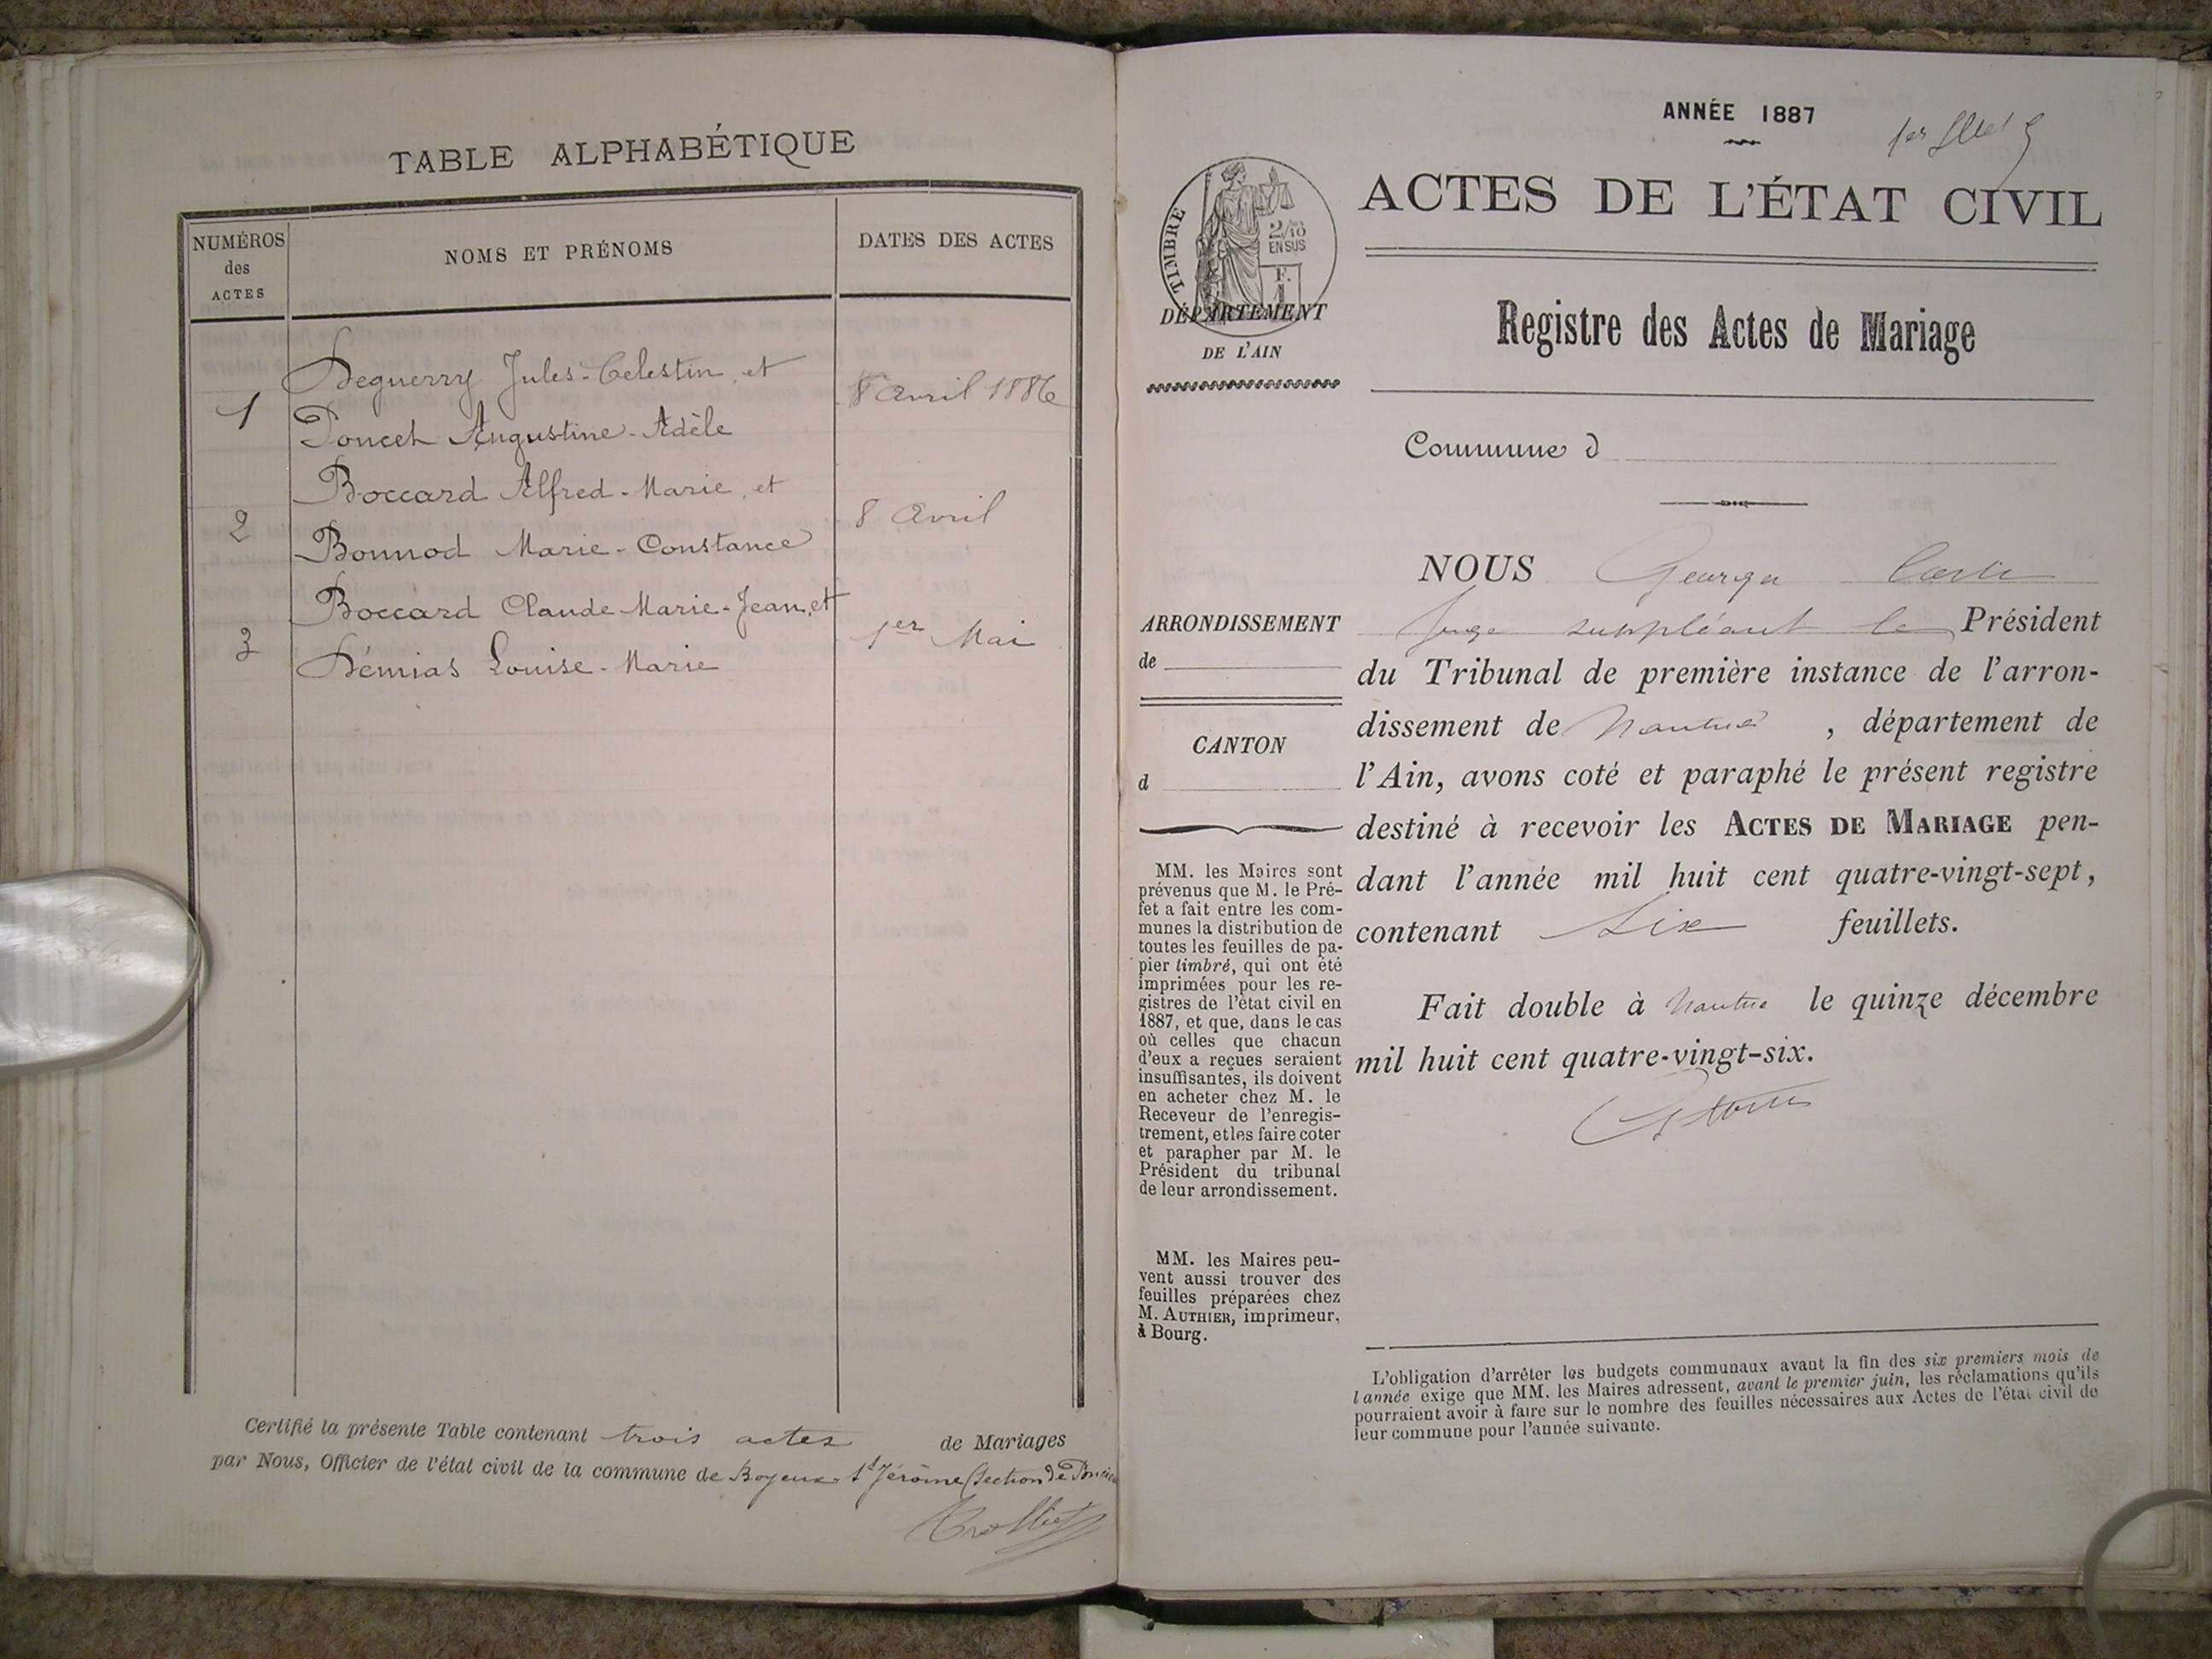 TABLE ALPHABÉTIQUE
NUMÉROS
des
ACTES
NOMS ET PRÉNOMS
DATES DES ACTES
1
Deguerry Jules-Celestin, et
Poncet Augustine-Adèle
8 Avril 1886
2
Boccard Alfred-Marie, et
Bonnod Marie-Constance
8 Avril
3
Boccard Claude-Marie-Jean, et
Démias Louise-Marie
1er Mai
Certifié la présente Table contenant trois actes de Mariages
par Nous, Officier de l'état civil de la commune de Boyeux-St Jérôme (Section de
ANNÉE 1887
1er
ACTES DE L'ÉTAT CIVIL
TIMBRE
2/10
EN SUS
F.
1
DÉPARTEMENT
DE L'AIN
Registre des Actes de Mariage
Commune d
NOUS Georges
Juge suppléant le Président
du Tribunal de première instance de l'arron-
dissement de Nantua , département de
l'Ain, avons coté et paraphé le présent registre
destiné à recevoir les ACTES DE MARIAGE pen-
dant l'année mil huit cent quatre-vingt-sept,
contenant Six feuillets.
Fait double à Nantua le quinze décembre
mil huit cent quatre-vingt-six.
ARRONDISSEMENT
de
CANTON
d
MM. les Maires sont
prévenus que M. le Pré-
fet a fait entre les com-
munes la distribution de
toutes les feuilles de pa-
pier timbré, qui ont été
imprimées pour les re-
gistres de l'état civil en
1887, et que, dans le cas
où celles que chacun
d'eux a reçues seraient
insuffisantes, ils doivent
en acheter chez M. le
Receveur de l'enregis-
trement, et les faire coter
et parapher par M. le
Président du tribunal
de leur arrondissement.
MM. les Maires peu-
vent aussi trouver des
feuilles préparées chez
M. AUTHIER, imprimeur,
à Bourg.
L'obligation d'arrêter les budgets communaux avant la fin des six premiers mois de
l'année exige que MM. les Maires adressent, avant le premier juin, les réclamations qu'ils
pourraient avoir à faire sur le nombre des feuilles nécessaires aux Actes de l'état civil de
leur commune pour l'année suivante.